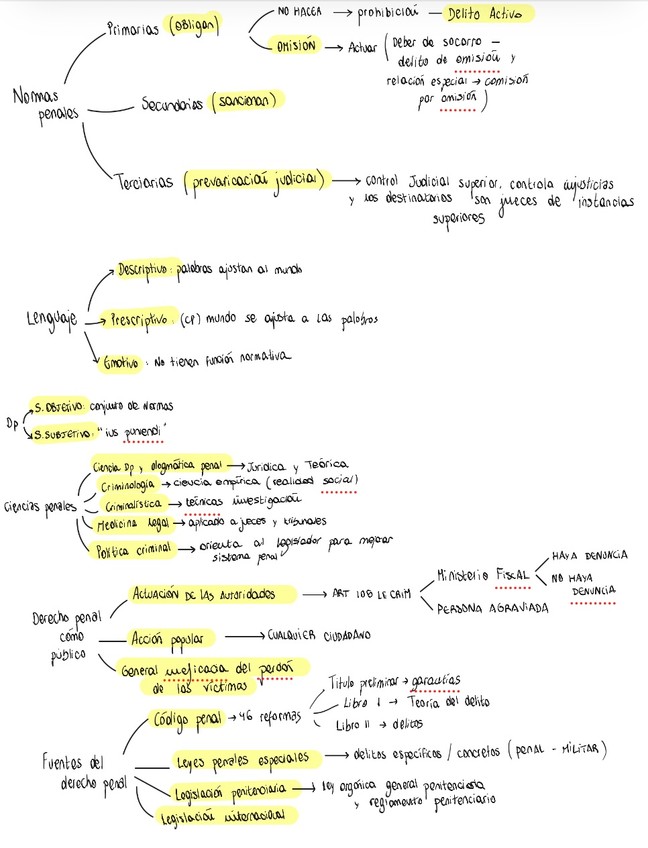 Primarias (obligan)
NO HACER → prohibición — Delito Activo
OMISIÓN → Actuar (Deber de socorro —
delito de omisión y
relación especial → comisión
por omisión)
Normas
penales
Secundarias (sancionan)
Terciarias (prevaricación judicial) → control Judicial superior, controla injusticias
y los destinatarios son jueces de instancias
superiores
Descriptivo: palabras ajustan al mundo
Lenguaje
Prescriptivo: (CP) mundo se ajusta a las palabras
Emotivo: No tienen función normativa
Dp
S. OBJETIVO: conjunto de normas
S. SUBJETIVO: "ius puniendi"
Ciencias penales
Ciencia Dp y dogmática penal → Jurídica y Teórica
Criminología → ciencia empírica (realidad social)
Criminalística → técnicas investigación
Medicina legal → aplicado a jueces y tribunales
Política criminal → orienta al legislador para mejorar
sistema penal
Derecho penal
como
público
ACTUACIÓN DE LAS AUTORIDADES → ART 105 LECRIM
Ministerio FISCAL
HAYA DENUNCIA
NO HAYA
DENUNCIA
PERSONA AGRAVIADA
Acción popular → CUALQUIER CIUDADANO
General ineficacia del perdón
de las víctimas
Fuentes del
derecho penal
Código penal → 46 reformas
Título preliminar → garantías
Libro I → Teoría del delito
Libro II → delitos
Leyes penales especiales → delitos específicos / concretos (penal - MILITAR)
Legislación penitenciaria → ley orgánica general penitenciaria
y reglamento penitenciario
Legislación internacional